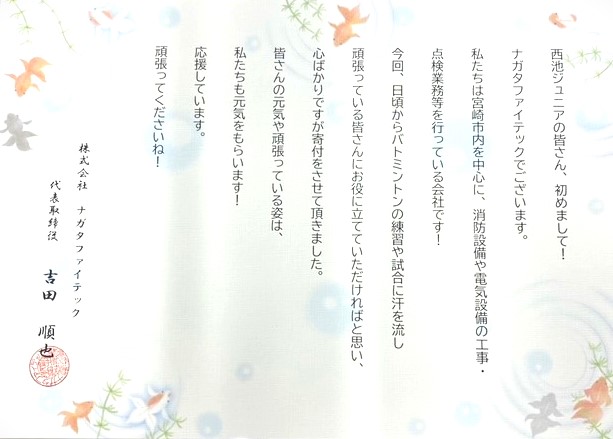 西池ジュニアの皆さん、初めまして！
ナガタファイテックでございます。
私たちは宮崎市内を中心に、消防設備や電気設備の工事・
点検業務等を行っている会社です！
今回、日頃からバトミントンの練習や試合に汗を流し
頑張っている皆さんにお役に立てていただければと思い、
心ばかりですが寄付をさせて頂きました。
皆さんの元気や頑張っている姿は、
私たちも元気をもらいます！
応援しています。
頑張ってくださいね！
株式会社 ナガタファイテック
代表取締役 吉田 順也